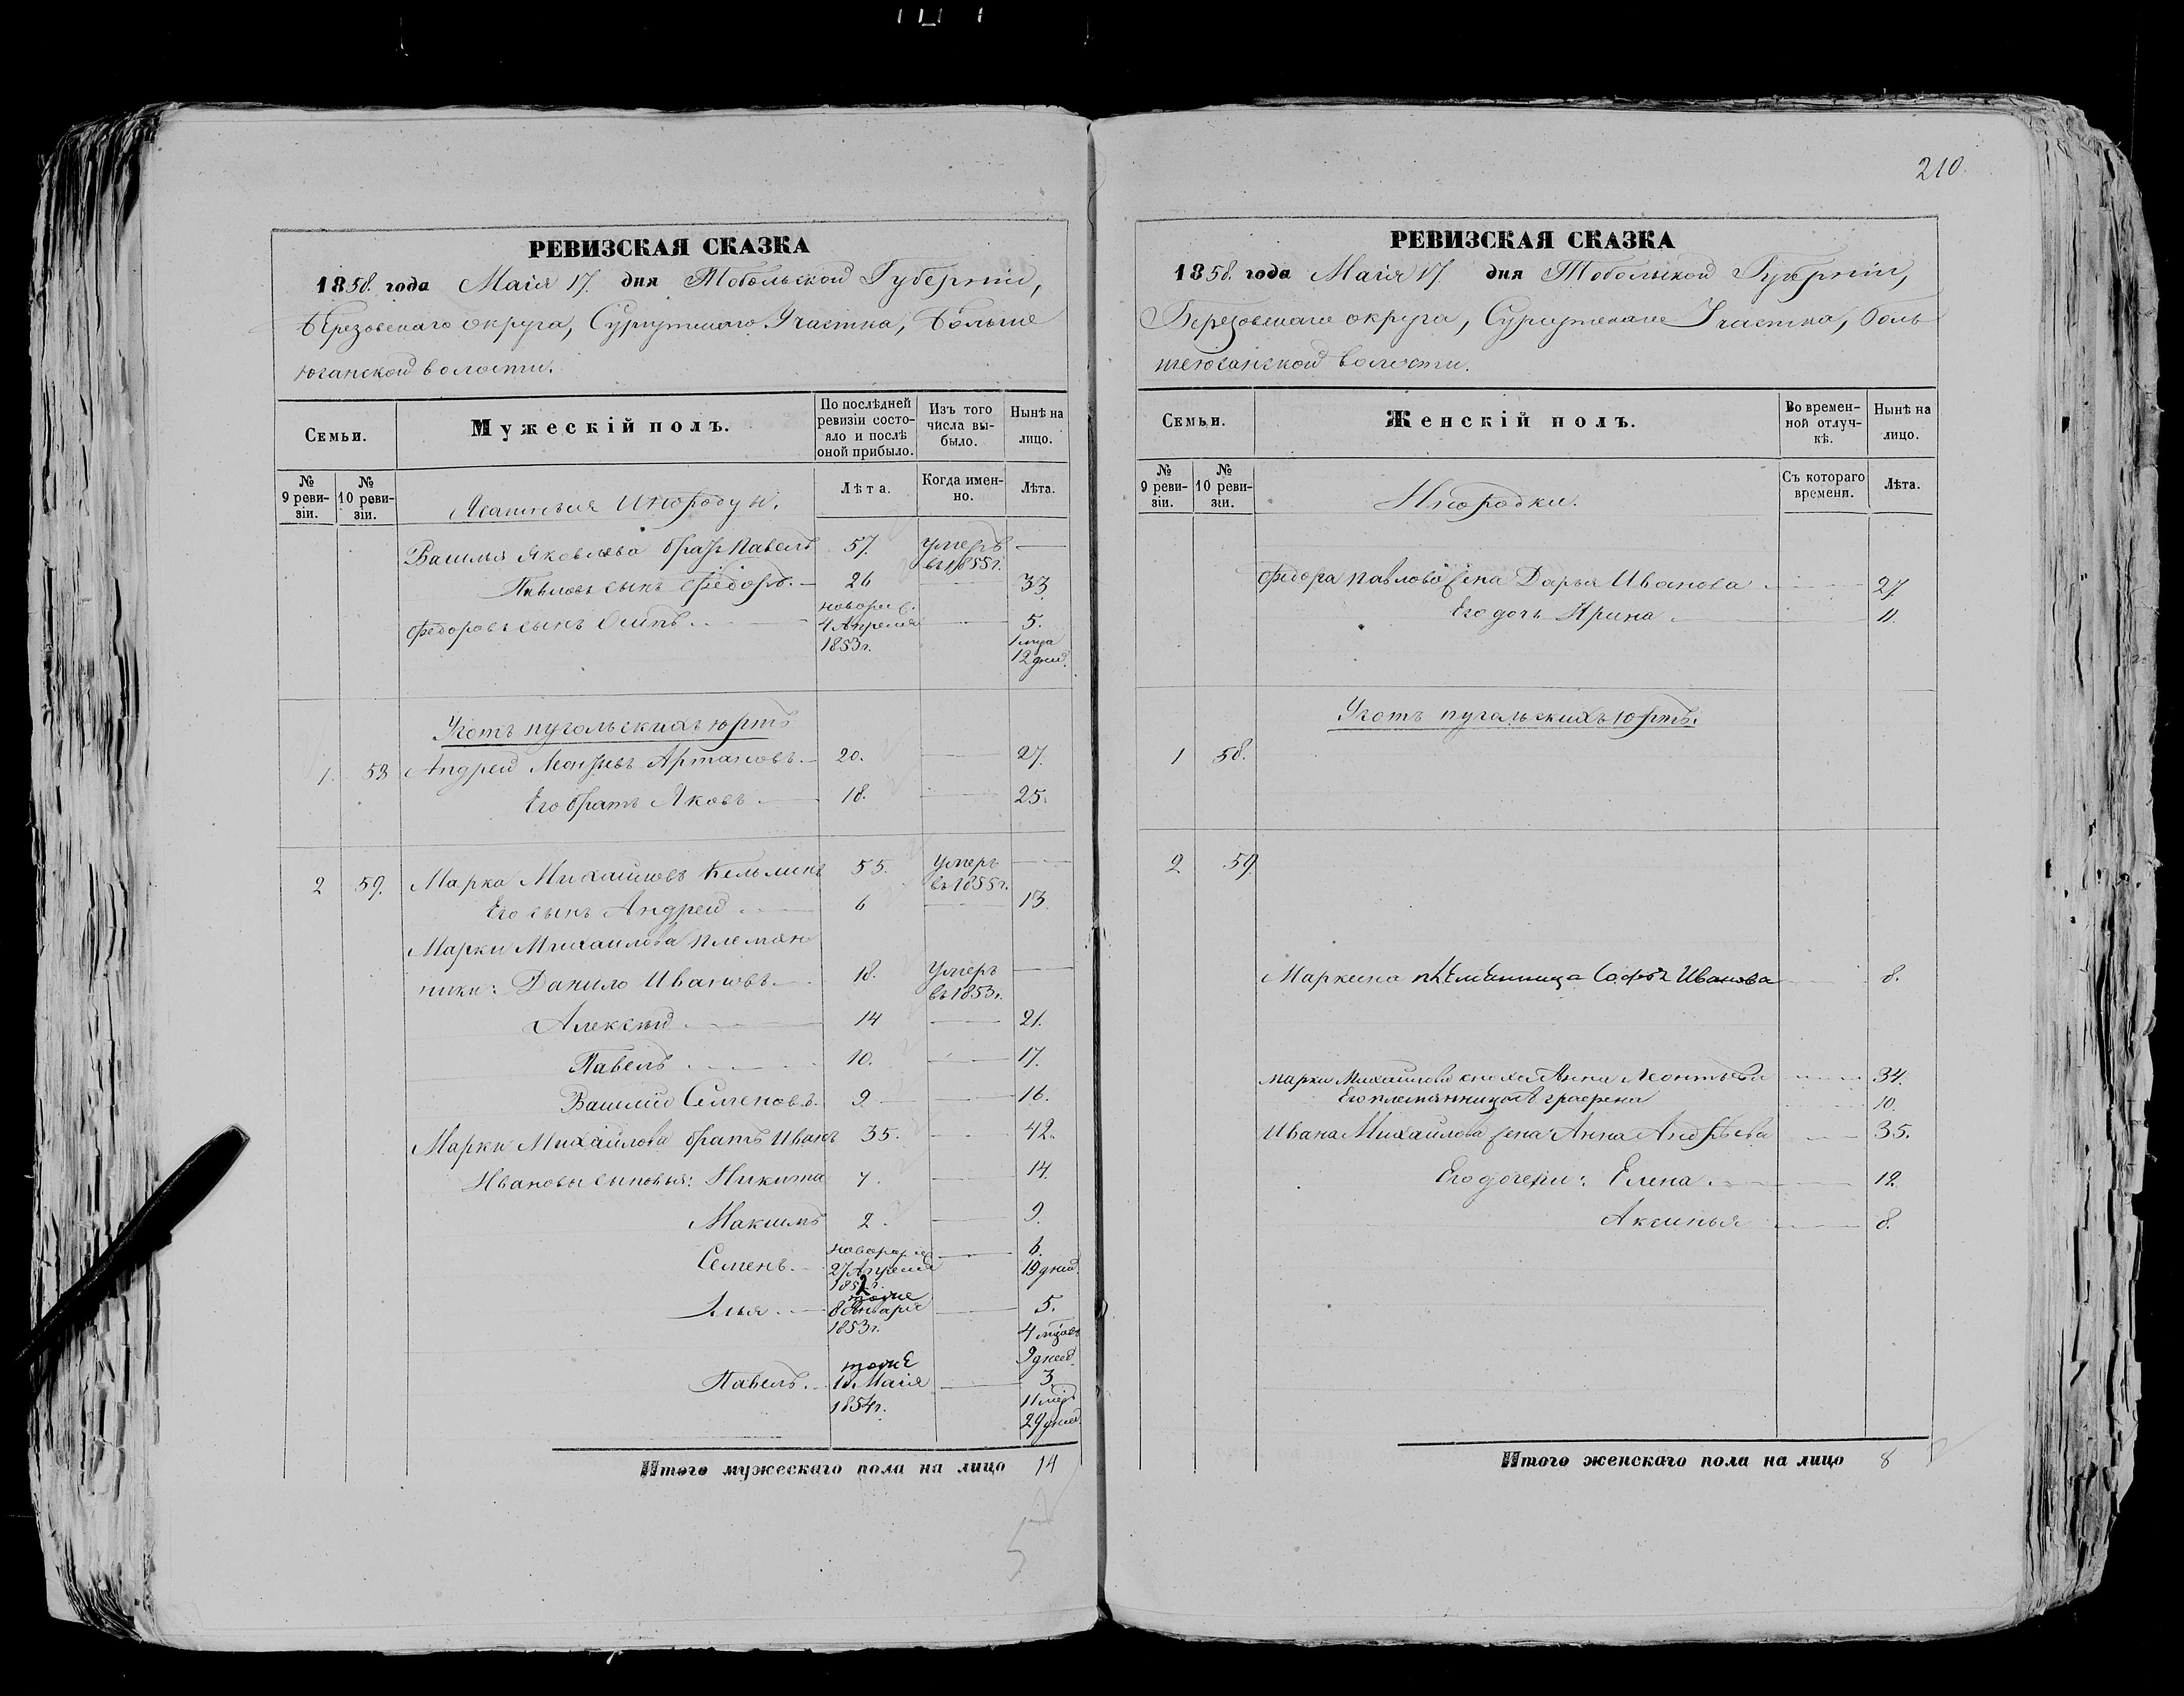 210.
РЕВИЗСКАЯ СКАЗКА
1858. года Маія 17. дня Тобольской Губерніи,
Березовскаго округа, Сургутскаго Участка, Больше
юганской волости.
Семьи.
Мужескій полъ.
По послѣдней ревизіи состояло и послѣ оной прибыло.
Изъ того числа выбыло.
Нынѣ на лицо.
№ 9 ревизіи.
№ 10 ревизіи.
Ясашныя Инородцы.
Лѣта.
Когда именно.
Лѣта.
Василья Яковлева братъ Павелъ 57. умеръ въ 1855 г. —
Павловъ сынъ Федоръ. — 26 — 33
Федоровъ сынъ Осипъ. — новорож. 4 Апреля 1853 г. — 5. 1 мца 12 дней.
Уготъ пугольскихъ юртъ
1. 58 Андрей Леонтьевъ Артановъ. — 20. — 27.
Его братъ Яковъ — 18. — 25.
2 59. Марко Михайловъ Кельминъ 55. Умеръ въ 1855 г. —
Его сынъ Андрей — 6 — 13.
Марки Михаилова племян
ники: Данило Ивановъ — 18. Умеръ въ 1853 г. —
Алексѣй — 14 — 21.
Павелъ — 10. — 17.
Василій Семеновъ. 9 — 16.
Марки Михайлова братъ Иванъ 35. — 42.
Ивановы сыновья: Никита 7. — 14.
Максимъ 2. — 9.
Семенъ. — новорож 27 Апреля 1852 г. — 6. 19 дней.
Илья — тоже 8 Января 1853 г. — 5. 4 мцов 9 дней.
Павелъ. — тоже 18 Маія 1854 г. — 3. 11 мцв 29 дней
Итого мужескаго пола на лицо 14
РЕВИЗСКАЯ СКАЗКА
1858. года Маія 17. дня Тобольской Губерніи,
Березовскаго округа, Сургутскаго Участка, Боль
шеюганской волости.
Семьи.
Женскій полъ.
Во временной отлучкѣ.
Нынѣ на лицо.
№ 9 ревизіи.
№ 10 ревизіи.
Инородки.
Съ котораго времени.
Лѣта.
Федора Павлова жена Дарья Иванова — 27.
Его дочь Ирина — 11.
Уготъ пугольскихъ юртъ.
1 58.
2 59
Маркина племянница Софья Иванова — 8.
Марки Михайлова сноха Анна Леонтьева — 34.
Его племянница Аграфена — 10.
Ивана Михайлова жена Анна Андрѣева — 35.
Его дочери: Елена — 12.
Аксинья — 8.
Итого женскаго пола на лицо 8